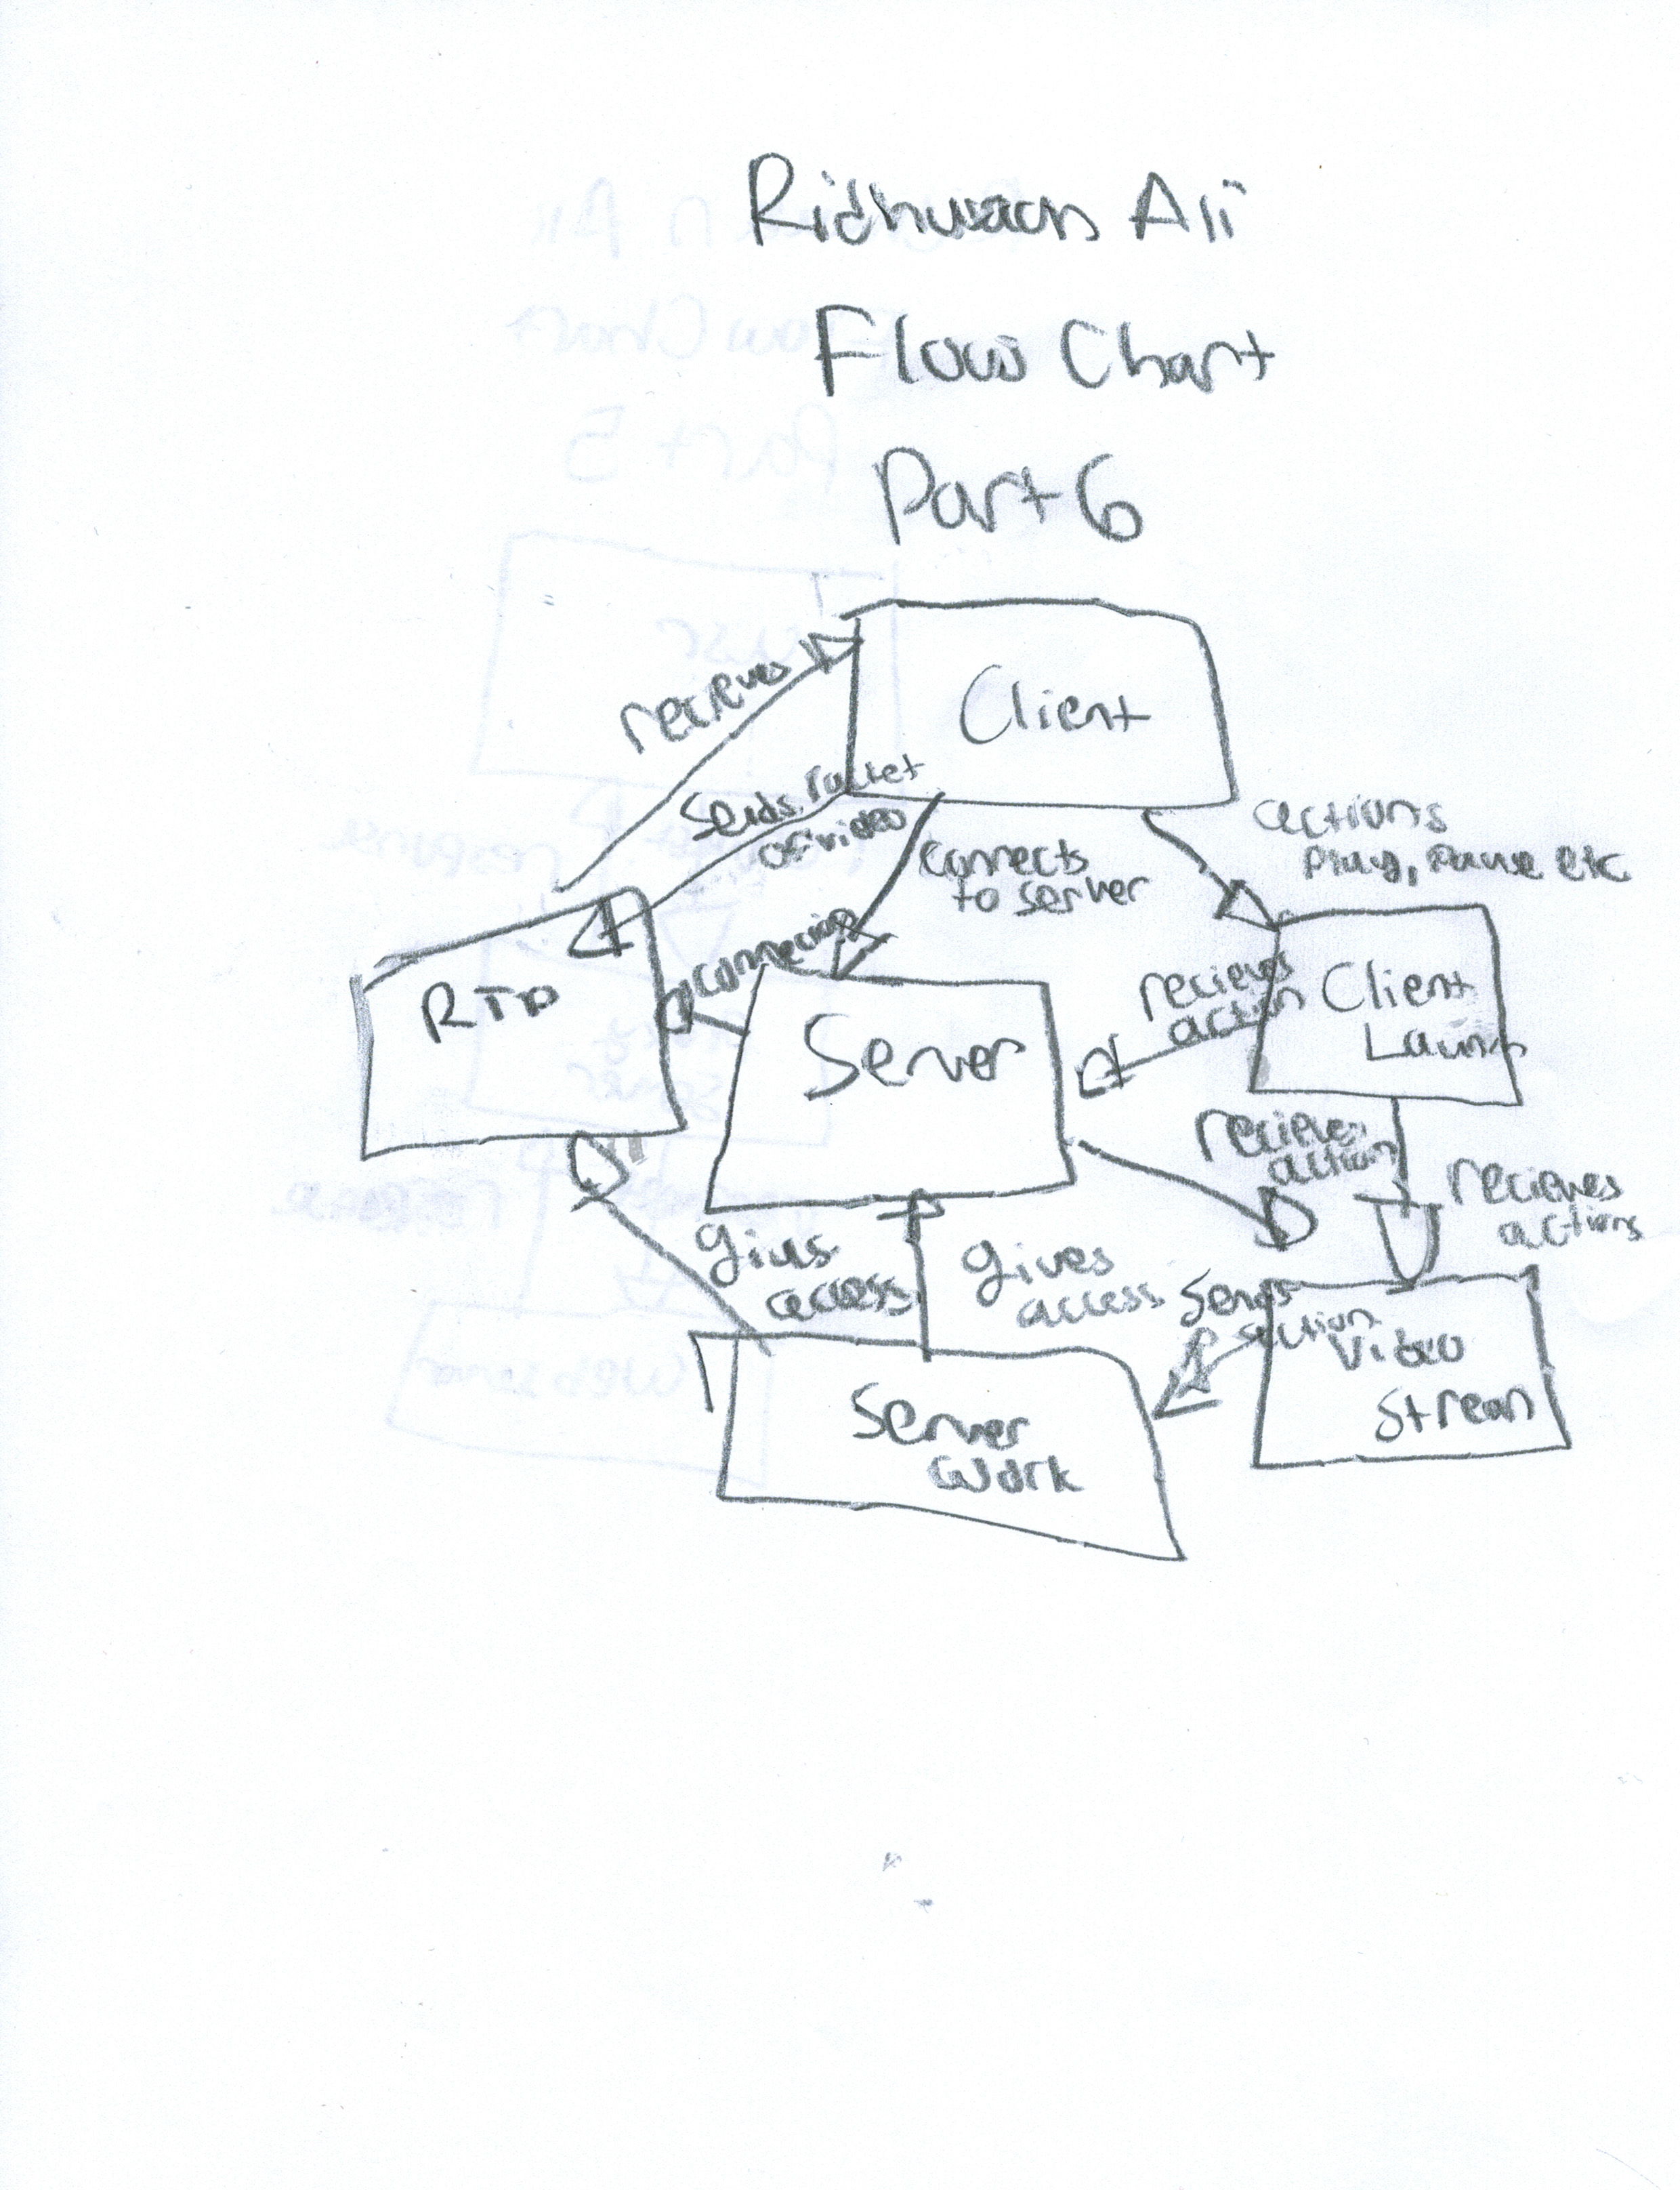 Ridhwaan Ali
Flow Chart
Part 6
Client
recieves
Sends Packet
of video
connects
to server
actions
Play, Pause etc
RTP
connection
Server
recieves
action
Client
Launch
recieves
action
recieves
actions
gives
access
gives
access
Sends
action
Video
Stream
Server
Work